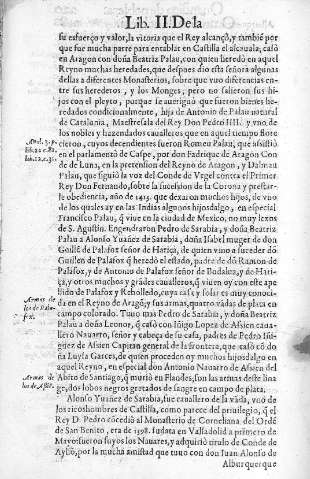 Lib. II. De la
su esfuerço y valor, la vitoria que el Rey alcançò, y tambiẽ por
que fue mucha parte para entablar en Castilla el alcauala, casò
en Aragon con doña Beatriz Palau, con quien heredò en aquel
Reyno muchas heredades, que despues dio esta señora algunas
dellas a diferentes Monasterios, sobre que vuo diferencias en-
tre sus herederos, y los Monges, pero no salieron sus hi-
jos con el pleyto, porque se aueriguò que fueron bienes he-
redados condicionalmente, hija de Antonio de Palau natural
de Catalunia, Maestresala del Rey Don Pedro IIII. y vno de
los nobles y hazendados caualleros que en aquel tiempo flore
cieron, cuyos decendientes fueron Romeu Palau, que assistiò
en el parlamento de Caspe, por don Fadrique de Aragon Con
de de Luna, en la pretension del Reyno de Aragon, y Dalmau
Palau, que siguiò la voz del Conde de Vrgel contra el Primer
Rey Don Fernando, sobre la sucession de la Corona y prestar-
le obediencia, año de 1413. que dexaron muchos hijos, de vno
de los quales ay en las Indias algunos hijosdalgo, en especial
Francisco Palau, q̃ viue en la ciudad de Mexico, no muy lexos
de S. Agustin. Engendraron Pedro de Sarabia, y doña Beatriz
Palau a Alonso Yuañez de Sarabia, doña Isabel muger de don
Guillẽ de Palafox señor de Hariça, de quien vuo a suceder dõ
Guillen de Palafox q̃ heredò el estado, padre de dõ Ramon de
Palafox, y de Antonio de Palafox señor de Bodalca, y de Hari-
ça, y otros muchos y grādes caualleros, q̃ viuen oy con este ape
llido de Palafox y Rebolledo, cuya casa y solar es muy conoci-
da en el Reyno de Aragõ, y sus armas, quatro vādas de plata en
campo colorado. Tuuo mas Pedro de Sarabia, y doña Beatriz
Palau a doña Leonor, q̃ casò con Iñigo Lopez de Assien caua-
llero Nauarro, señor y cabeça de su casa, padres de Pedro Iñi-
guez de Assien Capitan general de la frontera, que casò cõ do
ña Luysa Garces, de quien proceden oy muchos hijosdalgo en
aquel Reyno, en especial don Antonio Nauarro de Assien del
Abito de Santiago, q̃ muriò en Flandes, son las armas deste lina
ge, dos lobos negros gretados de sangre en campo de plata.
Alonso Yuañez de Sarabia, fue cauallero de la vāda, vno de
los ricoshombres de Castilla, como parece del priuilegio, q̃ el
Rey D. Pedro cõcediò al Monasterio de Corneliana del Ordẽ
de San Benito, era de 1398. fudata en Valladolid a primero de
Mayo fueron suyos los Nauares, y adquiriò titulo de Conde de
Ayllõ, por la mucha amistad que tuuo con don Iuan Alonso de
Alburquerque
Armas de
los de Pala-
fox.
Armas de
los de Assiẽ.